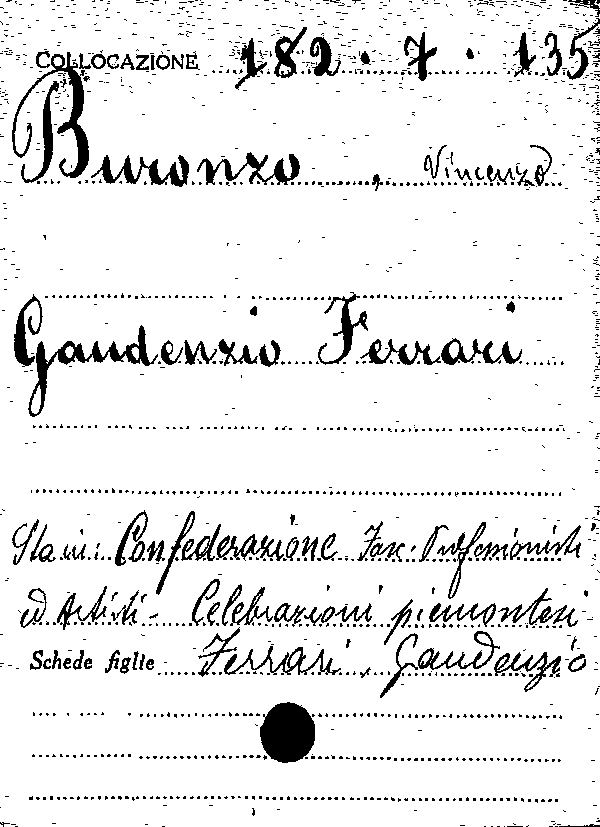 COLLOCAZIONE 182.7.135
Buronzo, Vincenzo
Gaudenzio Ferrari
Sta in: Confederazione Fasc. Professionisti
ed Artisti - Celebrazioni piemontesi
Schede figlie Ferrari, Gaudenzio